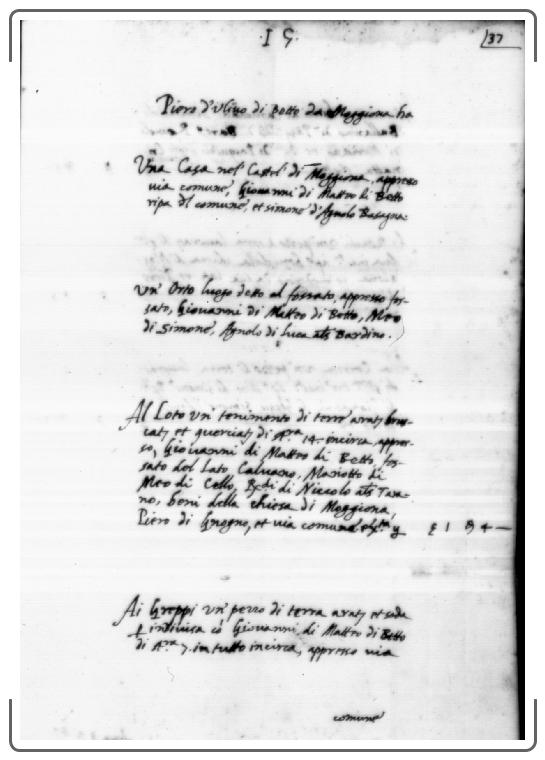 15. 37
Piero d'Ulivo di Betto da Moggiona ha
Una Casa nel Castel' di Moggiona, appresso
via comune, Giovanni di Matteo di Betto
ripa del comune, et simone d'Agnolo
Un' Orto luogo detto al fossato, appresso fos-
sato, Giovanni di Matteo di Betto, Meo
di Simone, Agnolo di Luca als Bardino.
Al Loto un' tenimento di terre
et di 14 incirca, appres-
so, Giovanni di Matteo di Betto, fos-
sato del Lato Calvano, Mariotto di
Meo di Cello, di Niccolo als
no, beni della chiesa di Moggiona,
Piero di Gnogno, et via comune
Ai Greppi un' pezzo di terra et soda
indivisa co' Giovanni di Matteo di Betto
di 7. in tutto incirca, appresso via
comune